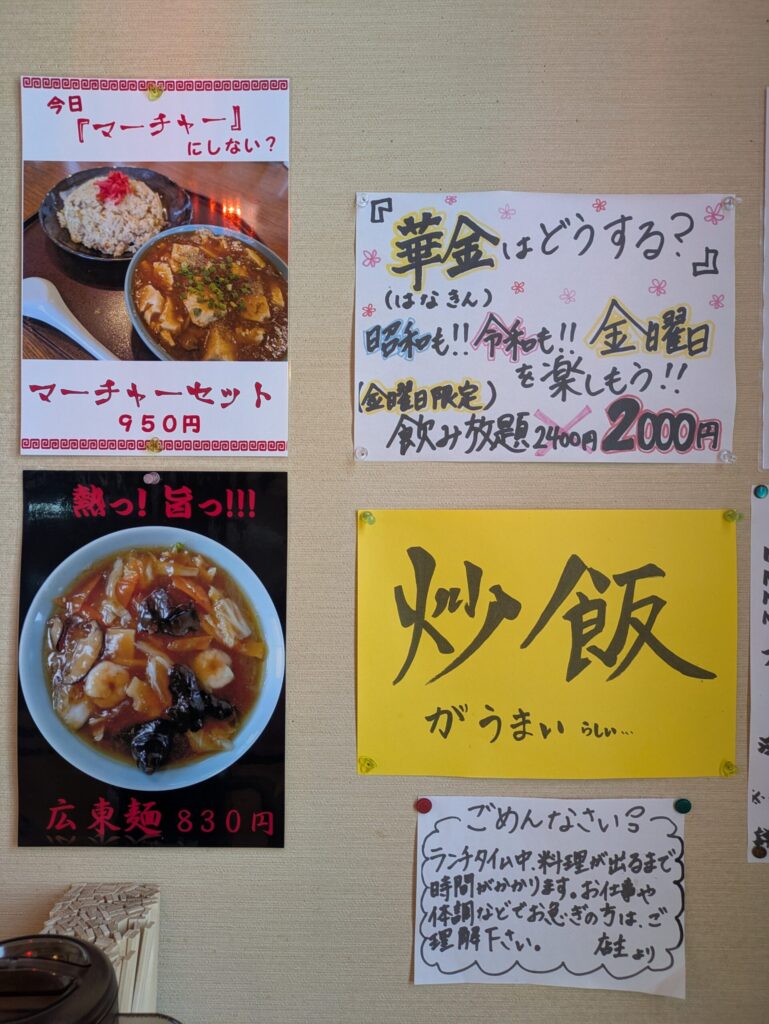 今日
『マーチャー』
にしない？
マーチャーセット
950円
熱っ! 旨っ!!!
広東麺 830円
『華金はどうする?』
(はなきん)
昭和も!! 令和も!! 金曜日
を楽しもう!!
(金曜日限定)
飲み放題 2400円 2000円
炒飯
がうまい らしい…
ごめんなさい
ランチタイム中、料理が出るまで
時間がかかります。お仕事や
体調などでお急ぎの方は、ご
理解下さい。 店主より